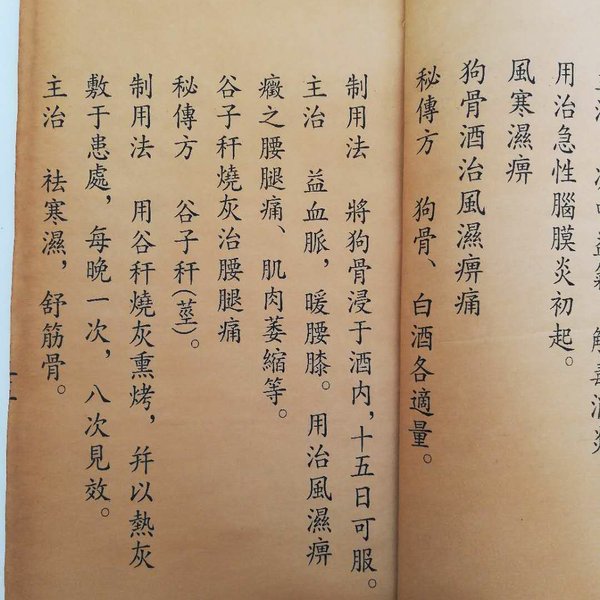 用治急性腦膜炎初起。
風寒濕痹
狗骨酒治風濕痹痛
秘傳方　狗骨、白酒各適量。
制用法　將狗骨浸于酒内，十五日可服。
主治　益血脈，暖腰膝。用治風濕痹
癥之腰腿痛、肌肉萎縮等。
谷子秆燒灰治腰腿痛
秘傳方　谷子秆(莖)。
制用法　用谷秆燒灰熏烤，幷以熱灰
敷于患處，每晚一次，八次見效。
主治　祛寒濕，舒筋骨。